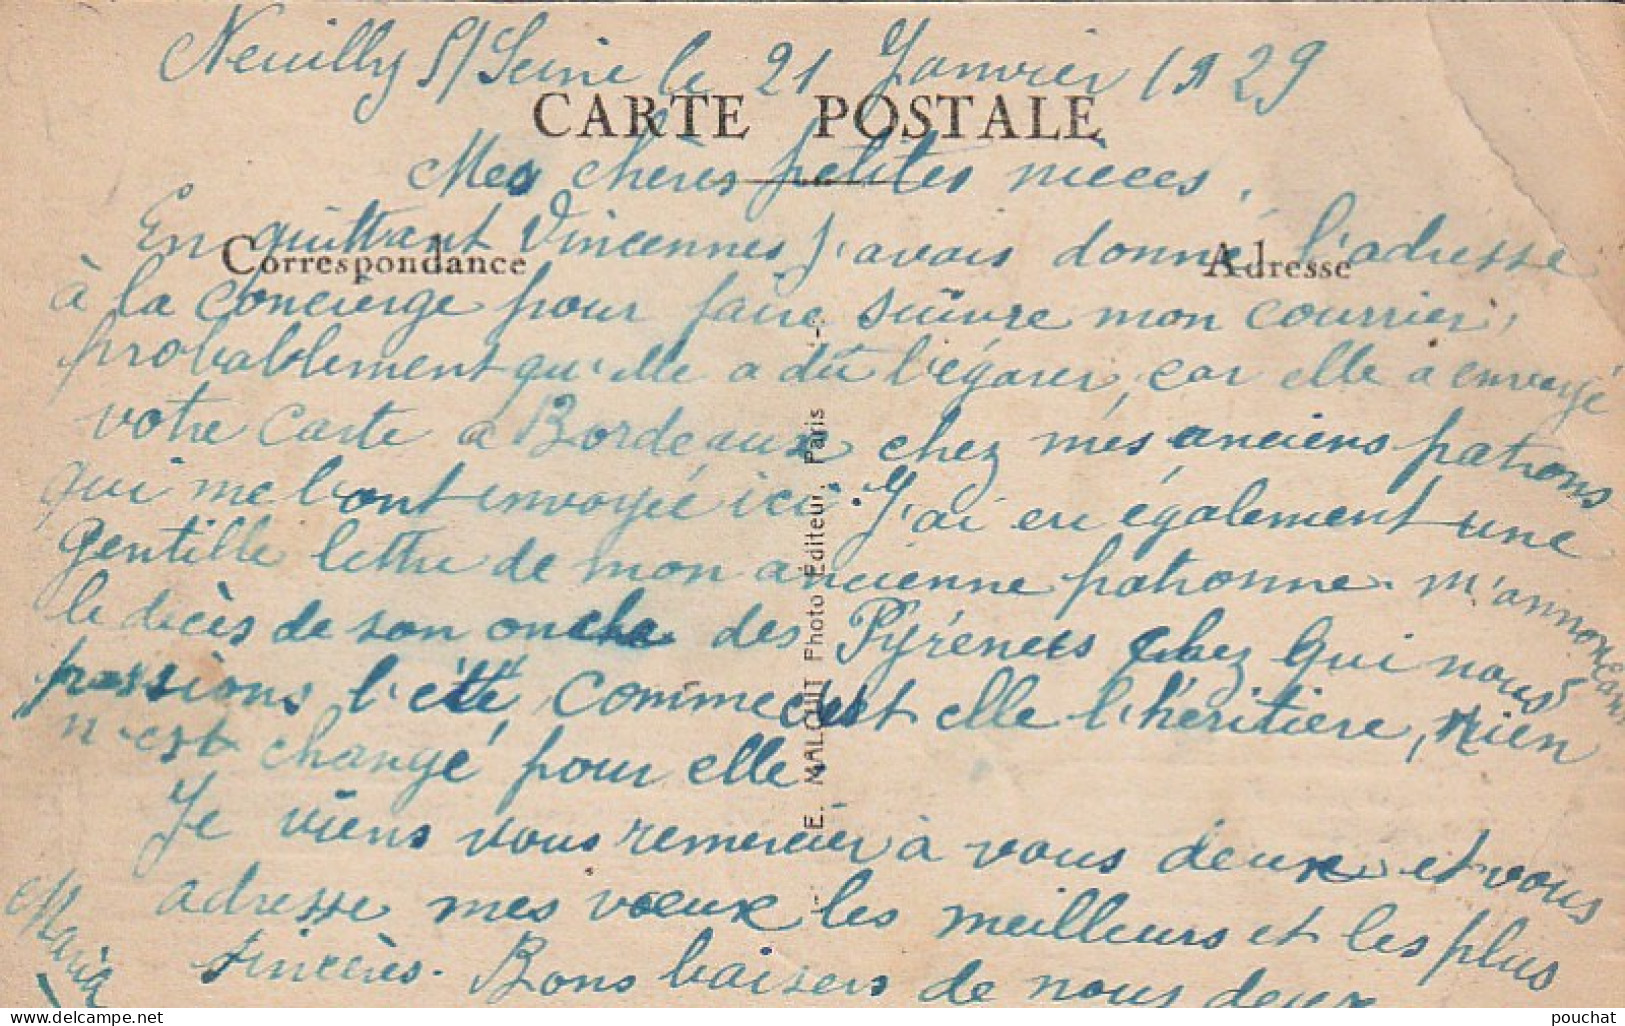 Neuilly S/Seine le 21 Janvier 1929
CARTE POSTALE
Mes chères petites nièces,
Correspondance
Adresse
En quittant Vincennes j'avais donné l'adresse
à la concierge pour faire suivre mon courrier,
probablement qu'elle a dû l'égarer, car elle a envoyé
votre carte à Bordeaux chez mes anciens patrons
qui me l'ont envoyée ici. J'ai eu également une
gentille lettre de mon ancienne patronne m'annonçant
le décès de son oncle des Pyrénées chez qui nous
passions l'été, comme c'est elle l'héritière, rien
n'est changé pour elle.
Je viens vous remercier à vous deux et vous
adresse mes vœux les meilleurs et les plus
sincères. Bons baisers de nous deux
Maria
E. MALCUIT Photo Éditeur, Paris
pouchat